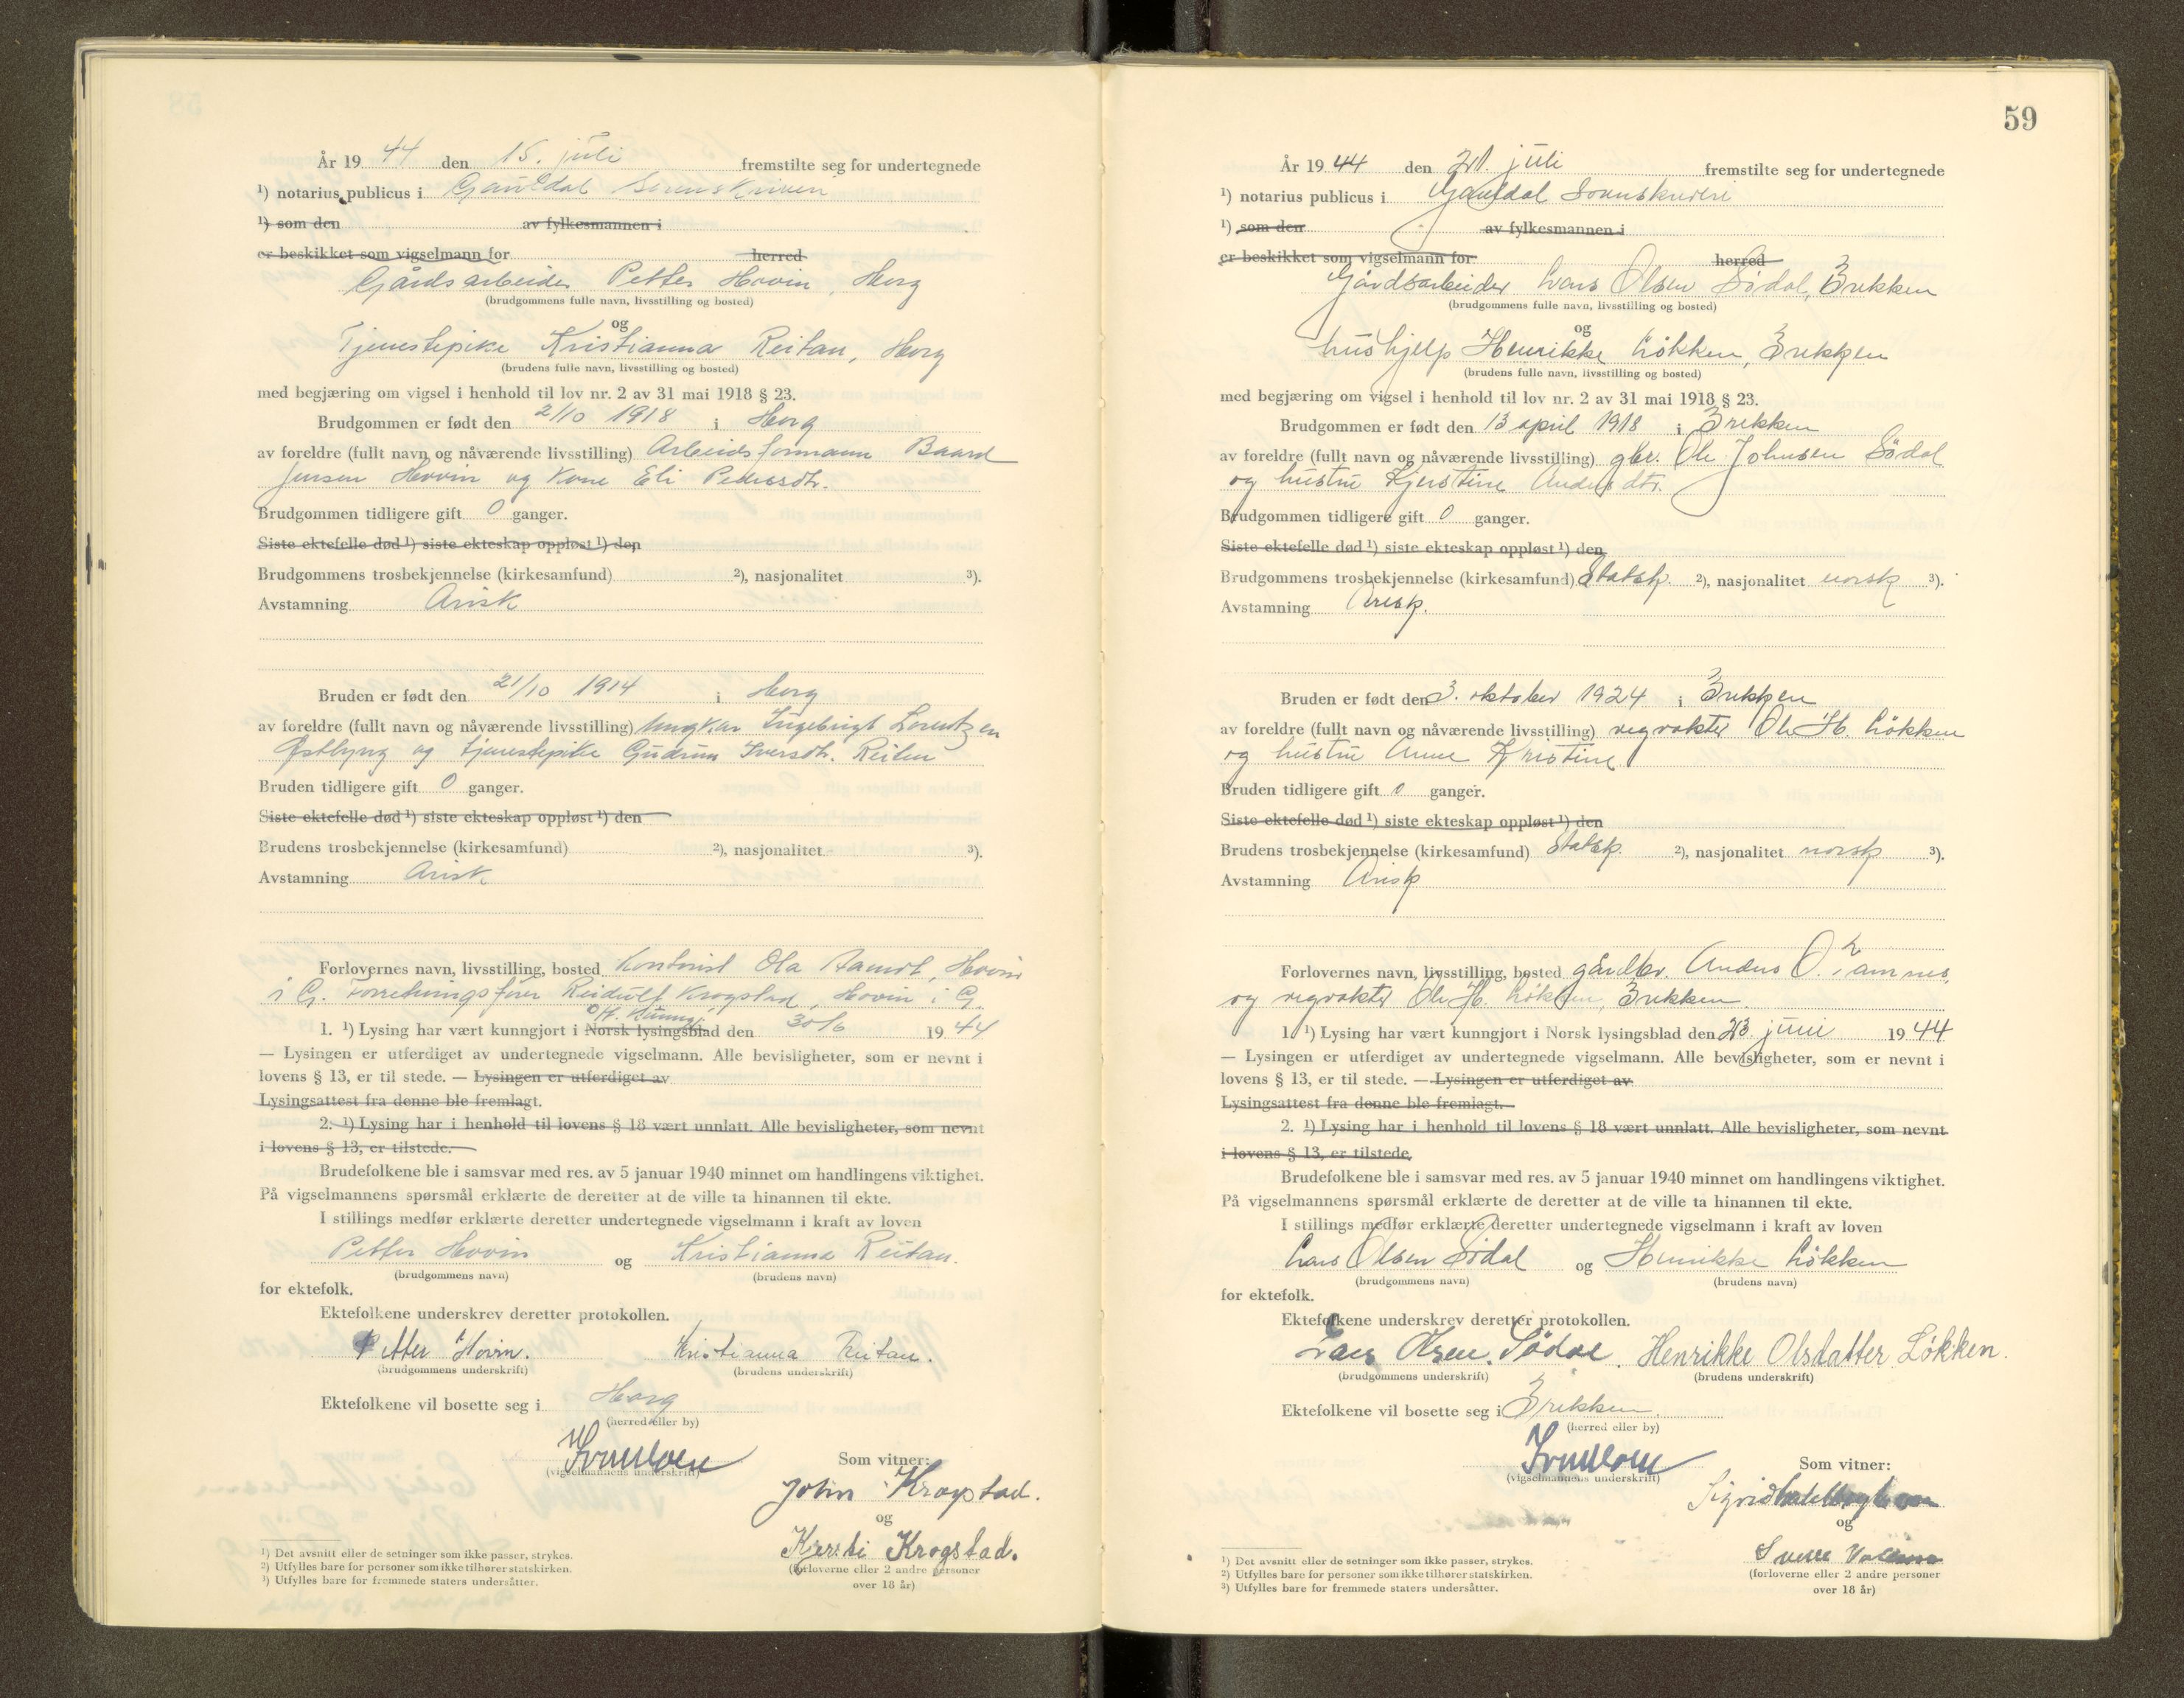 År 1944 den 15. juli fremstilte seg for undertegnede
¹) notarius publicus i Gauldal Sorenskriveri
¹) som den av fylkesmannen i
er beskikket som vigselmann for herred
Gårdsarbeider Petter Hovin, Horg
(brudgommens fulle navn, livsstilling og bosted)
og
Tjenestepike Kristianna Reitan, Horg
(brudens fulle navn, livsstilling og bosted)
med begjæring om vigsel i henhold til lov nr. 2 av 31 mai 1918 § 23.
Brudgommen er født den 2/10 1918 i Horg
av foreldre (fullt navn og nåværende livsstilling) Arbeidsformann Baard
Jensen Hovin og kone Eli Pedersdtr.
Brudgommen tidligere gift 0 ganger.
Siste ektefelle død ¹) siste ekteskap oppløst ¹) den
Brudgommens trosbekjennelse (kirkesamfund) ²), nasjonalitet ³).
Avstamning Arisk
Bruden er født den 21/10 1914 i Horg
av foreldre (fullt navn og nåværende livsstilling) Ungkar Ingebrigt Lorentzen
Østbyng og tjenestepike Gudrun Iversdtr. Reiten
Bruden tidligere gift 0 ganger.
Siste ektefelle død ¹) siste ekteskap oppløst ¹) den
Brudens trosbekjennelse (kirkesamfund) ²), nasjonalitet ³).
Avstamning Arisk
Forlovernes navn, livsstilling, bosted Kontorist Ola Aamot, Hovin
i G. Forretningsfører Reidulf Krogstad, Hovin i G.
1. ¹) Lysing har vært kunngjort i Norsk lysingsblad den 30/6 1944
— Lysingen er utferdiget av undertegnede vigselmann. Alle bevisligheter, som er nevnt i
lovens § 13, er til stede. — Lysingen er utferdiget av
Lysingsattest fra denne ble fremlagt.
2. ¹) Lysing har i henhold til lovens § 18 vært unnlatt. Alle bevisligheter, som nevnt
i lovens § 13, er tilstede.
Brudefolkene ble i samsvar med res. av 5 januar 1940 minnet om handlingens viktighet.
På vigselmannens spørsmål erklærte de deretter at de ville ta hinannen til ekte.
I stillings medfør erklærte deretter undertegnede vigselmann i kraft av loven
Petter Hovin og Kristianna Reitan.
(brudgommens navn) (brudens navn)
for ektefolk.
Ektefolkene underskrev deretter protokollen.
Petter Hovin. Kristianna Reitan.
(brudgommens underskrift) (brudens underskrift)
Ektefolkene vil bosette seg i Horg
(herred eller by)
(vigselmannens underskrift)
Som vitner:
John Krogstad.
og
Kjersti Krogstad.
(forloverne eller 2 andre personer
over 18 år)
¹) Det avsnitt eller de setninger som ikke passer, strykes.
²) Utfylles bare for personer som ikke tilhører statskirken.
³) Utfylles bare for fremmede staters undersåtter.
59
År 1944 den 21. juli fremstilte seg for undertegnede
¹) notarius publicus i Gauldal Sorenskriveri
¹) som den av fylkesmannen i
er beskikket som vigselmann for herred
Gårdsarbeider Lars Olsen Sødal, Brekken
(brudgommens fulle navn, livsstilling og bosted)
og
hushjelp Henrikke Løkken, Brekken
(brudens fulle navn, livsstilling og bosted)
med begjæring om vigsel i henhold til lov nr. 2 av 31 mai 1918 § 23.
Brudgommen er født den 13 april 1918 i Brekken
av foreldre (fullt navn og nåværende livsstilling) gbr. Ole Johnsen Sødal
og hustru Kjerstine Andersdtr.
Brudgommen tidligere gift 0 ganger.
Siste ektefelle død ¹) siste ekteskap oppløst ¹) den
Brudgommens trosbekjennelse (kirkesamfund) statsk. ²), nasjonalitet norsk ³).
Avstamning Arisk.
Bruden er født den 3. oktober 1924 i Brekken
av foreldre (fullt navn og nåværende livsstilling) vegvokter Ole H. Løkken
og hustru Anne Kristine
Bruden tidligere gift 0 ganger.
Siste ektefelle død ¹) siste ekteskap oppløst ¹) den
Brudens trosbekjennelse (kirkesamfund) statsk. ²), nasjonalitet norsk ³).
Avstamning Arisk
Forlovernes navn, livsstilling, bosted gårdbr. Anders O.
og vegvokter Ole H. Løkken, Brekken
1. ¹) Lysing har vært kunngjort i Norsk lysingsblad den 23. juni 1944
— Lysingen er utferdiget av undertegnede vigselmann. Alle bevisligheter, som er nevnt i
lovens § 13, er til stede. — Lysingen er utferdiget av
Lysingsattest fra denne ble fremlagt.
2. ¹) Lysing har i henhold til lovens § 18 vært unnlatt. Alle bevisligheter, som nevnt
i lovens § 13, er tilstede.
Brudefolkene ble i samsvar med res. av 5 januar 1940 minnet om handlingens viktighet.
På vigselmannens spørsmål erklærte de deretter at de ville ta hinannen til ekte.
I stillings medfør erklærte deretter undertegnede vigselmann i kraft av loven
Lars Olsen Sødal og Henrikke Løkken
(brudgommens navn) (brudens navn)
for ektefolk.
Ektefolkene underskrev deretter protokollen.
Lars Olsen Sødal. Henrikke Olsdatter Løkken.
(brudgommens underskrift) (brudens underskrift)
Ektefolkene vil bosette seg i Brekken.
(herred eller by)
(vigselmannens underskrift)
Som vitner:
Sigrid
og
(forloverne eller 2 andre personer
over 18 år)
¹) Det avsnitt eller de setninger som ikke passer, strykes.
²) Utfylles bare for personer som ikke tilhører statskirken.
³) Utfylles bare for fremmede staters undersåtter.